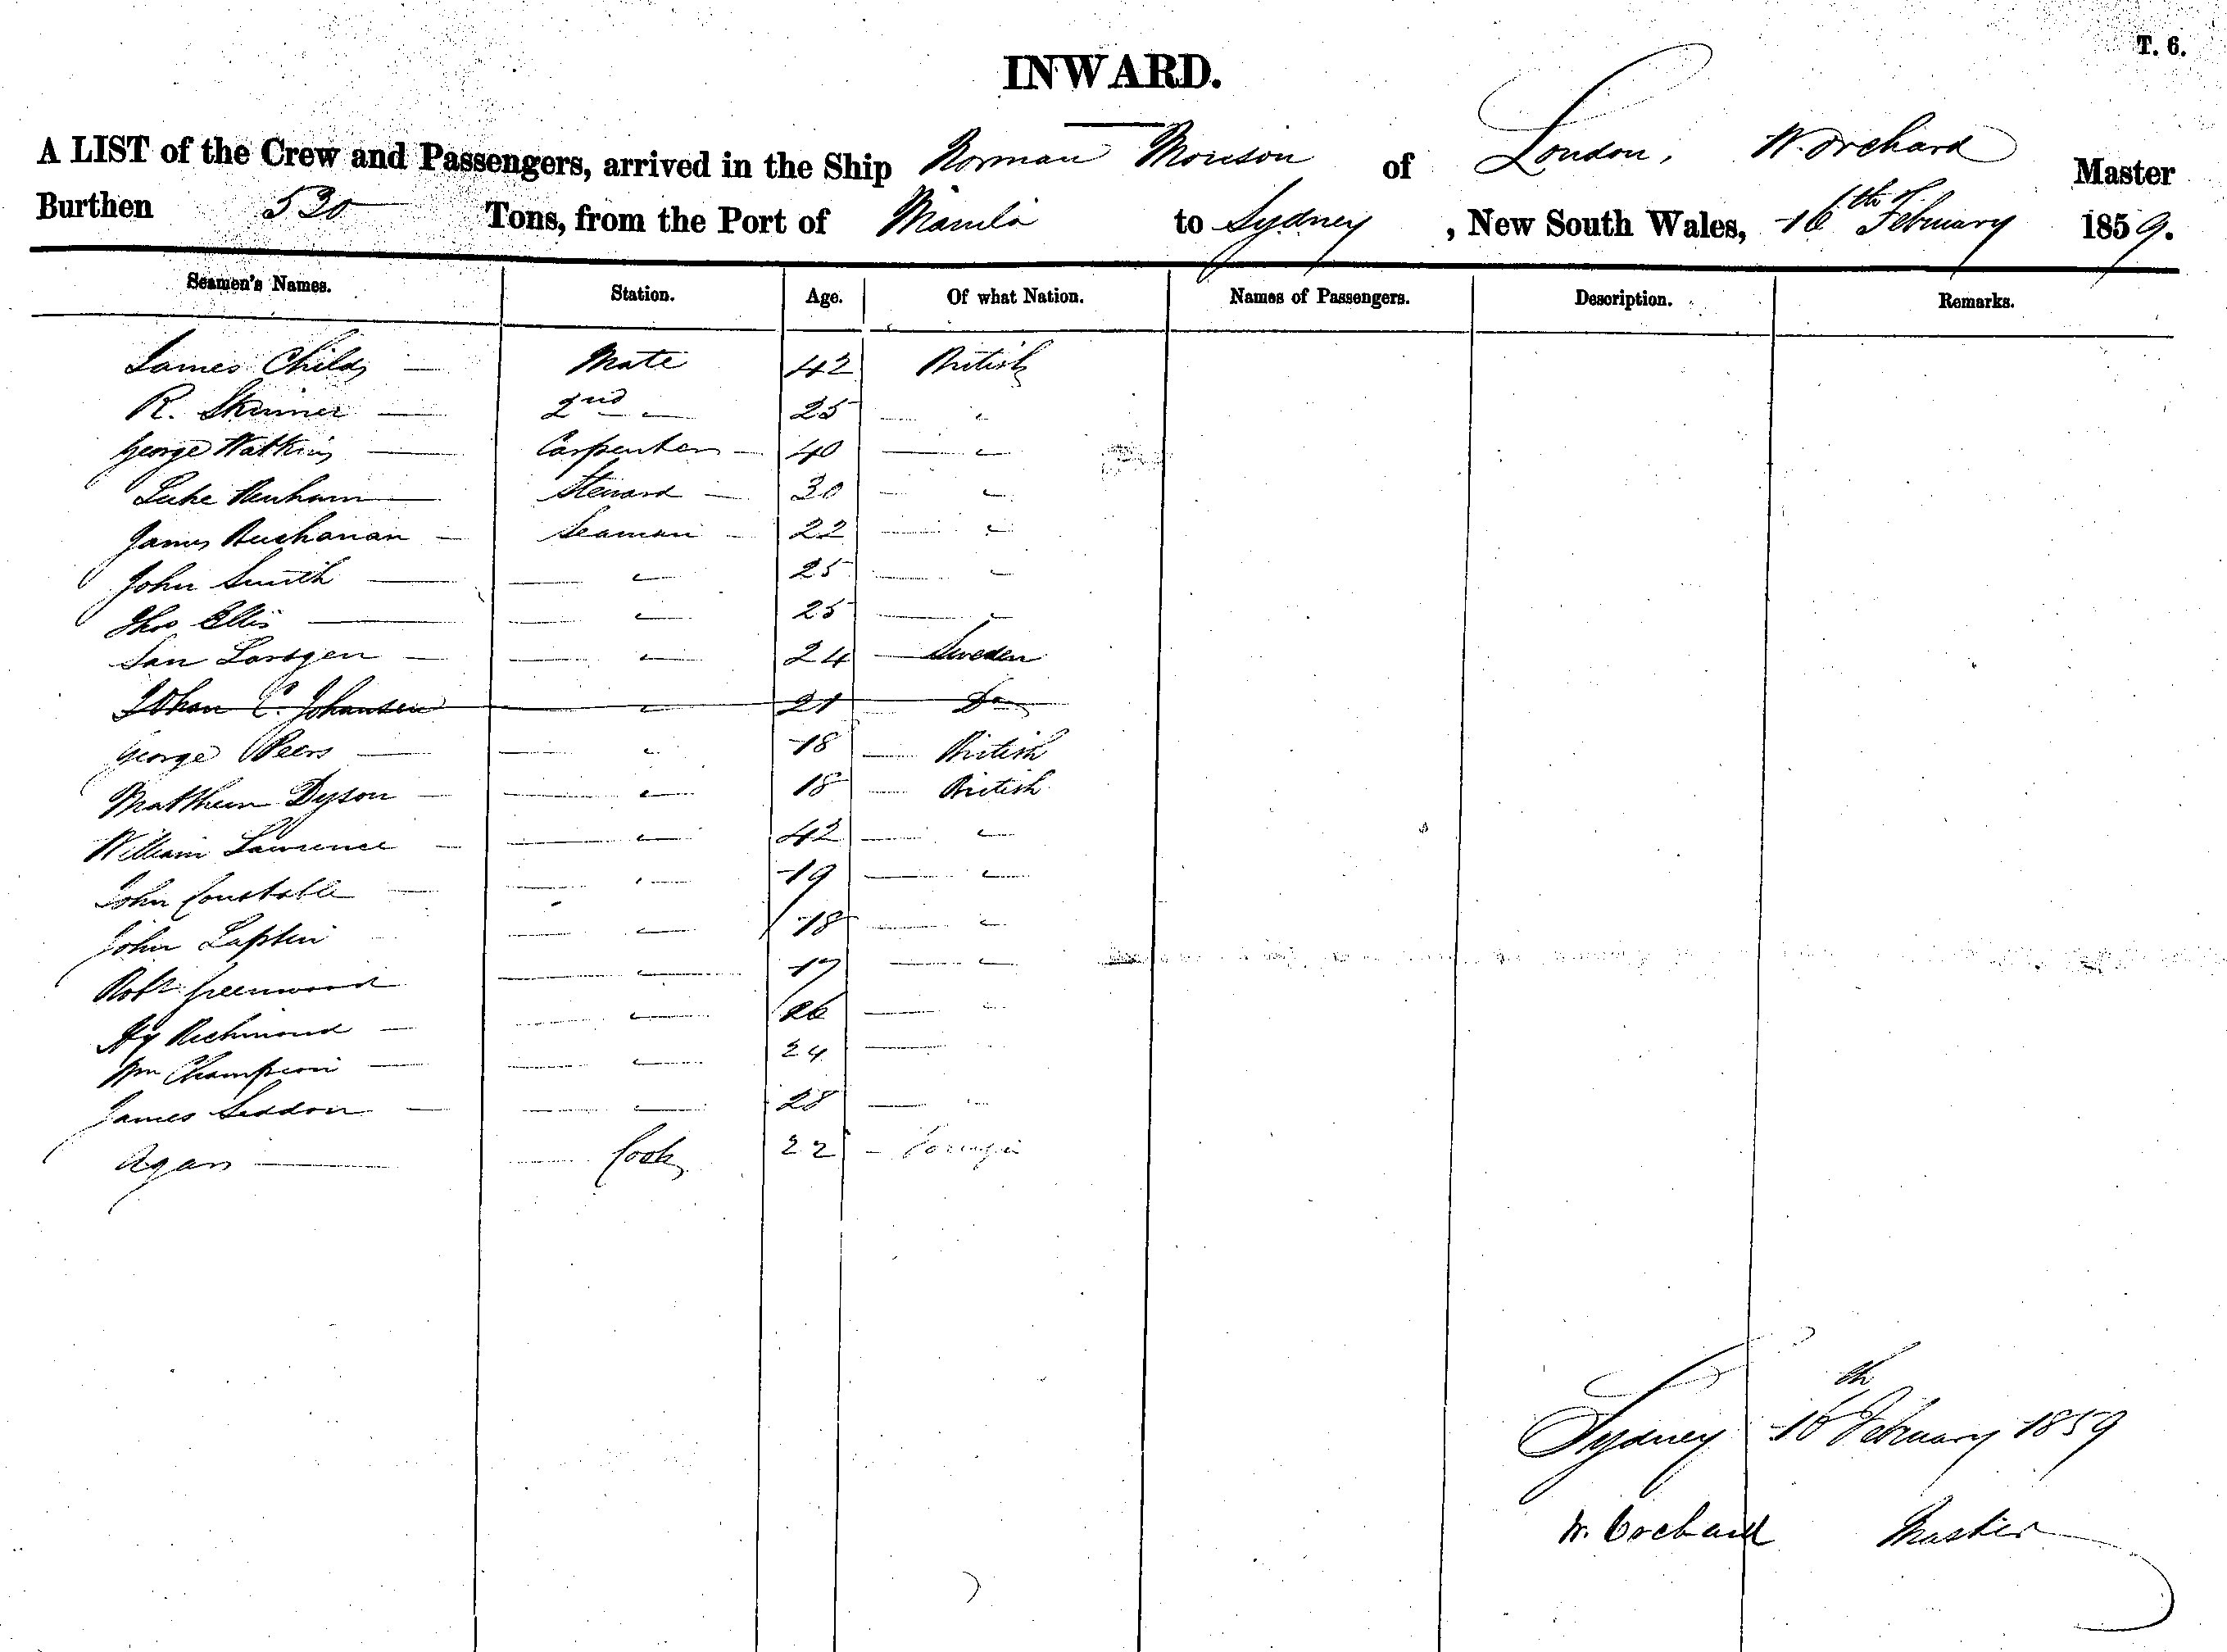 T. 6.
INWARD.
A LIST of the Crew and Passengers, arrived in the Ship Norman Morison of London, W. Orchard Master
Burthen 530 Tons, from the Port of Manila to Sydney, New South Wales, 16th of February 1859.
Seamen's Names. Station. Age. Of what Nation. Names of Passengers. Description. Remarks.
James Childs — Mate 42 British
R. Skinner — 2nd — 25 — "
George Watkins — Carpenter — 40 — "
Luke Denham — Steward — 30 — "
James Buchanan — Seaman — 22 — "
John Smith — " — 25 — "
Thos Ellis — " — 25 — "
— " — 24 — Sweden
Johan C. Johansen — " 21 — Do
George Peers — " — 18 — British
Matthew Dyson — " — 18 — British
William Lawrence — " — 42 — "
John Constable — " — 19 — "
John — " — 18 — "
Robt Greenwood — " — 17 — "
Hy Richmond — " — 26 — "
Wm Champion — " — 24 — "
James Seddon — " — 28 — "
— Cook 22 —
Sydney 16th February 1859
W. Orchard Master